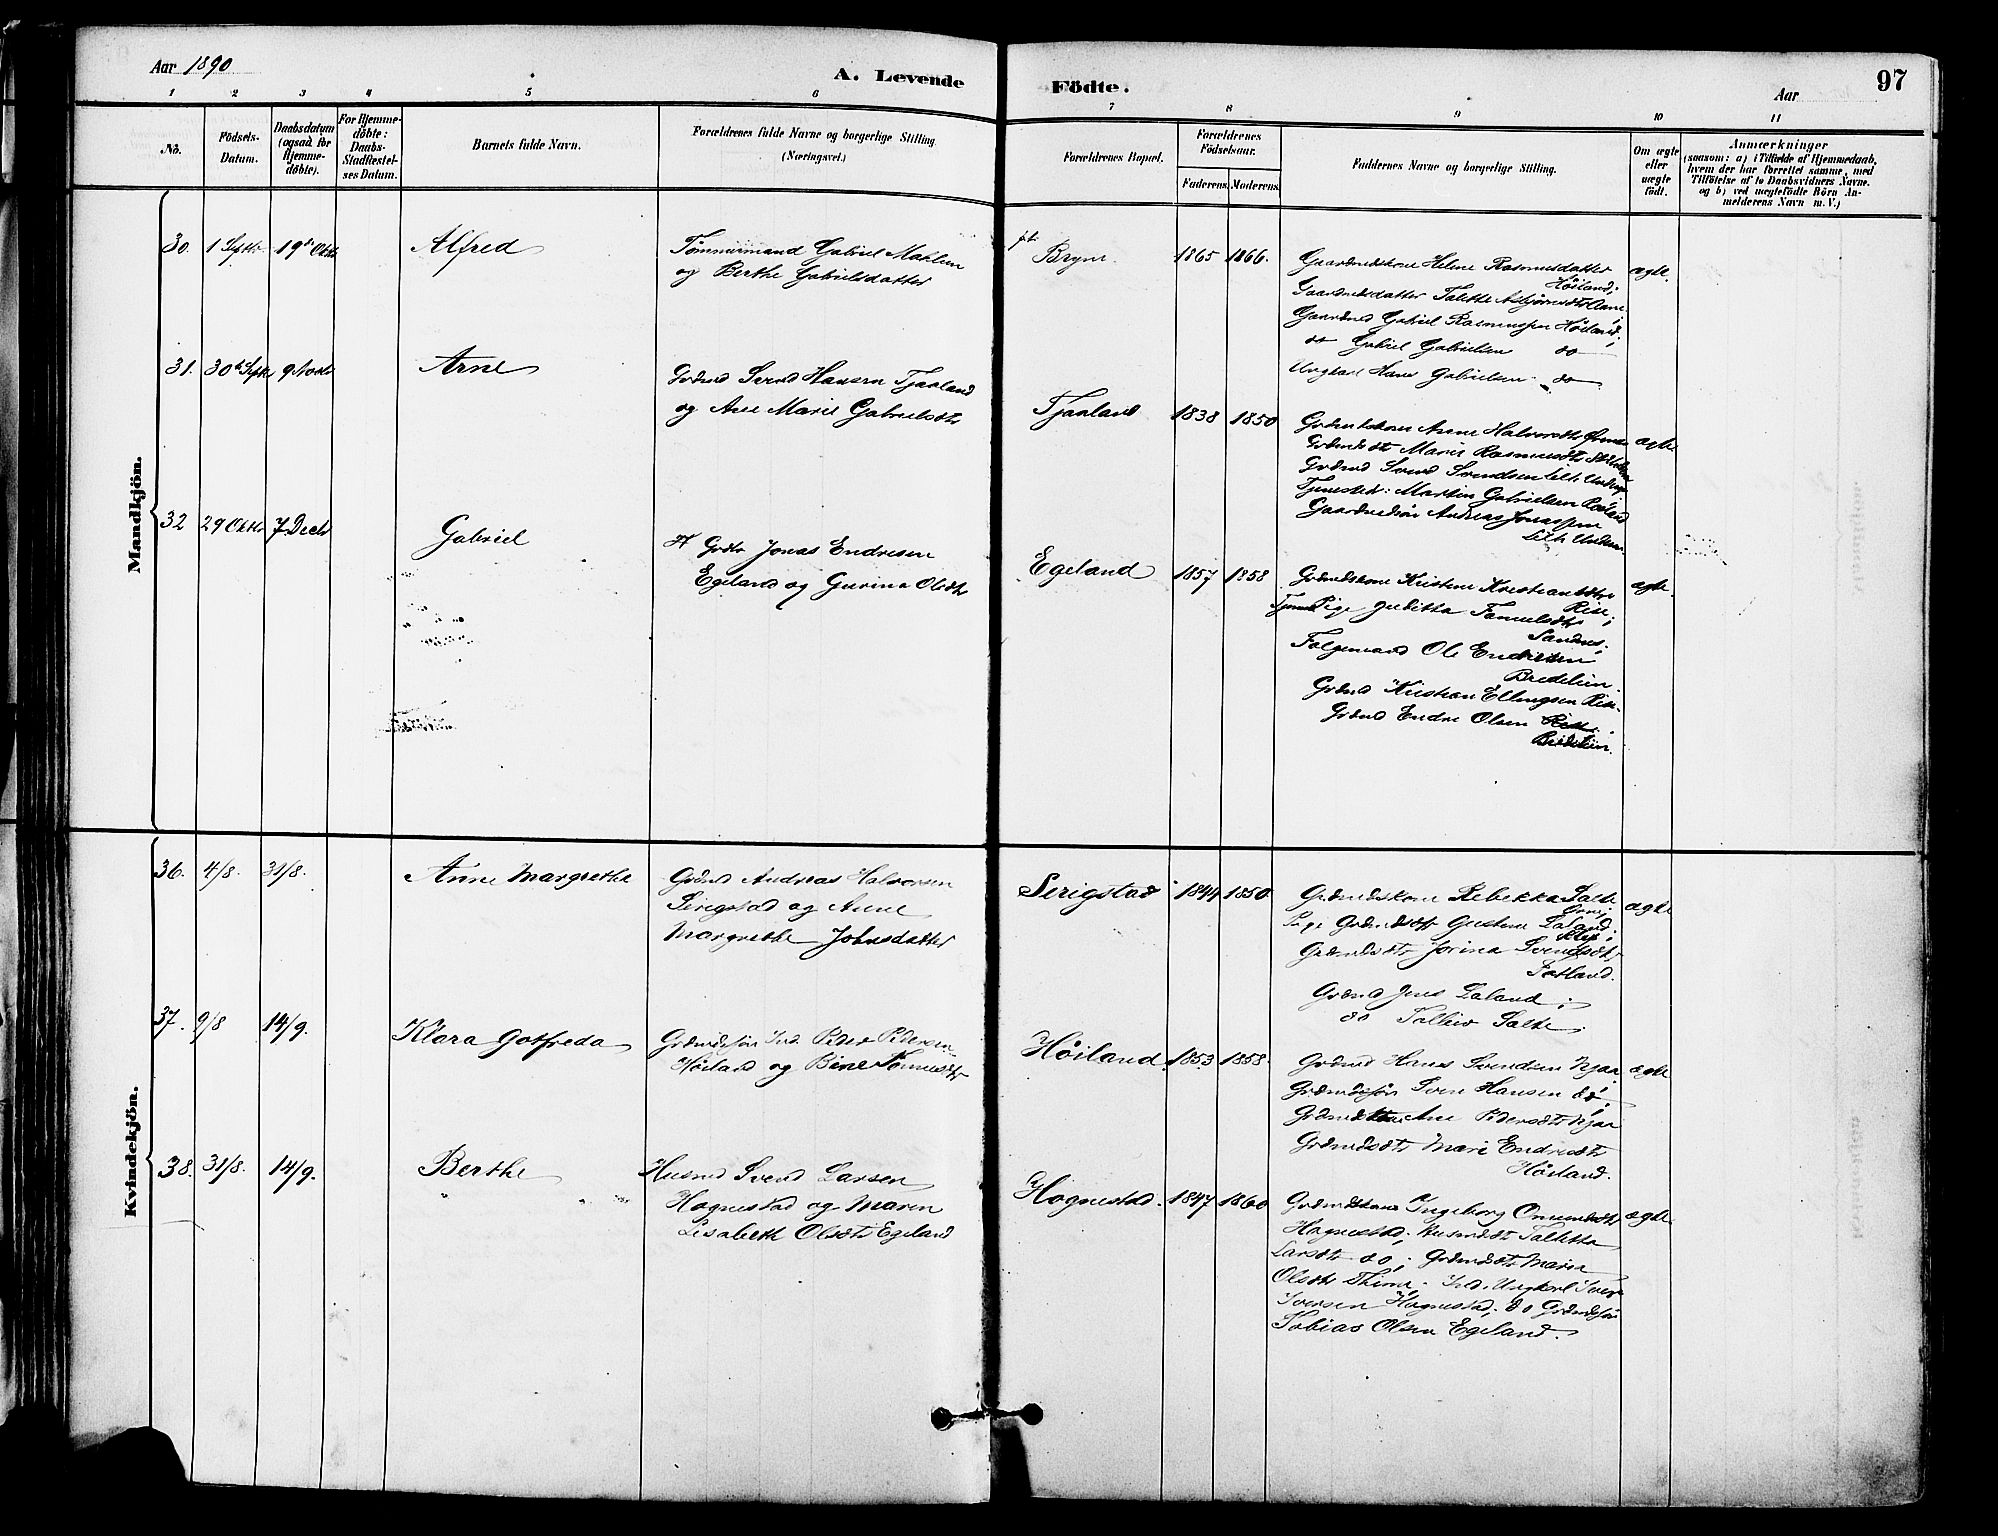 Aar 1890
A. Levende
Födte.
Aar
97
1 2 3 4 5 6 7 8 9 10 11
No.
Födsels-
Datum.
Daabsdatum
(ogsaa for
Hjemme-
döbte).
For Hjemme-
döbte:
Daabs-
Stadfæstel-
ses Datum.
Barnets fulde Navn.
Forældrenes fulde Navne og borgerlige Stilling
(Næringsvei.)
Forældrenes Bopæl.
Forældrenes
Födselsaar.
Faderens. Moderens.
Faddernes Navne og borgerlige Stilling.
Om ægte
eller
uægte
födt.
Anmærkninger
(saasom: a) i Tilfælde af Hjemmedaab,
hvem der har forrettet samme, med
Tilföielse af to Daabsvidners Navne,
og b) ved uægtefödte Börn An-
melderens Navn m. V.)
Mandkjön.
30. 1 Septbr 19de Oktbr
Alfred
Tømmermand Gabriel Mahlum
og Berthe Gabrielsdatter
Bryne.
1865 1866.
Gaardmdskone Helene Rasmusdatter
Höiland;
Gaardmdsdatter Talette Asbjørnsdtr Aane;
Gaardmd Gabriel Rasmussen Höiland;
do Gabriel Gabrielsen do
Ungkarl Hans Gabrielsen do
ægte.
31. 30te Septbr 9 Novbr
Arne
Grdmd Svend Hansen Tjaaland
og Ane Marie Gabrielsdtr
Tjaaland
1838 1850
Grdmdskone Anne Halvorsdtr
Grdmdsdt Marie Rasmusdtr
Grdmd Svend Svendsen Lilh Undem
Tjenestedr: Martin Gabrielsen
Gaardmdssön Andreas Jonassen
Lilh Undem
ægte
32 29 Oktbr 7 Decbr
Gabriel
Grdbr Jonas Endresen
Egeland og Gurina Olsdtr
Egeland
1857 1858
Grdmdskone Kristene Kristiansdtr
Rise;
Pige Juditta Samuelsdtr
Sandnes;
Folgemand Ole Endresen
Bredelien.
Grdmd Kristian Ellingsen Rise.
Grdmd Endre Olsen
Bredelien.
ægte.
Kvindekjön.
36. 4/8. 31/8.
Anne Margrethe
Grdmd Andreas Halvorsen
Serigstad og Anne
Margrethe Johnsdatter
Serigstad
1844 1850
Grdmdskone Rebekka Salte
Pige Grdmdsdtr Gustava Laland,
Klep;
Grdmdsdtr Jorina Svendsdtr
Fotland.
Grdmd Jens Laland;
do Tolleiv Salte.
ægte
37. 9/8 14/9.
Klara Gotfreda
Grdmdssön Ind. Peder Pedersen
Höiland og Bine Tønnesdtr
Höiland
1853 1858.
Grdmd Hans Svendsen Njaa
Grdmdssön Sven Hansen do;
Grdmdskone Ane Pedersdtr Njaa
Grdmdsdtr Mari Endresdtr
Höiland.
ægte
38. 31/8. 14/9.
Berthe
Husmd Svend Larsen
Hognestad og Maren
Lisabeth Olsdtr Egeland
Hognestad.
1847 1860
Grdmdskone Ingeborg Omundsdtr
Hognestad. Husmdsdt Tallette
Larsdtr do; Grdmdsdtr Maren
Olsdtr Thime. Ind. Ungkarl Iver
Iversen Hognestad; do Grdmdssön
Tobias Olsen Egeland.
ægte.